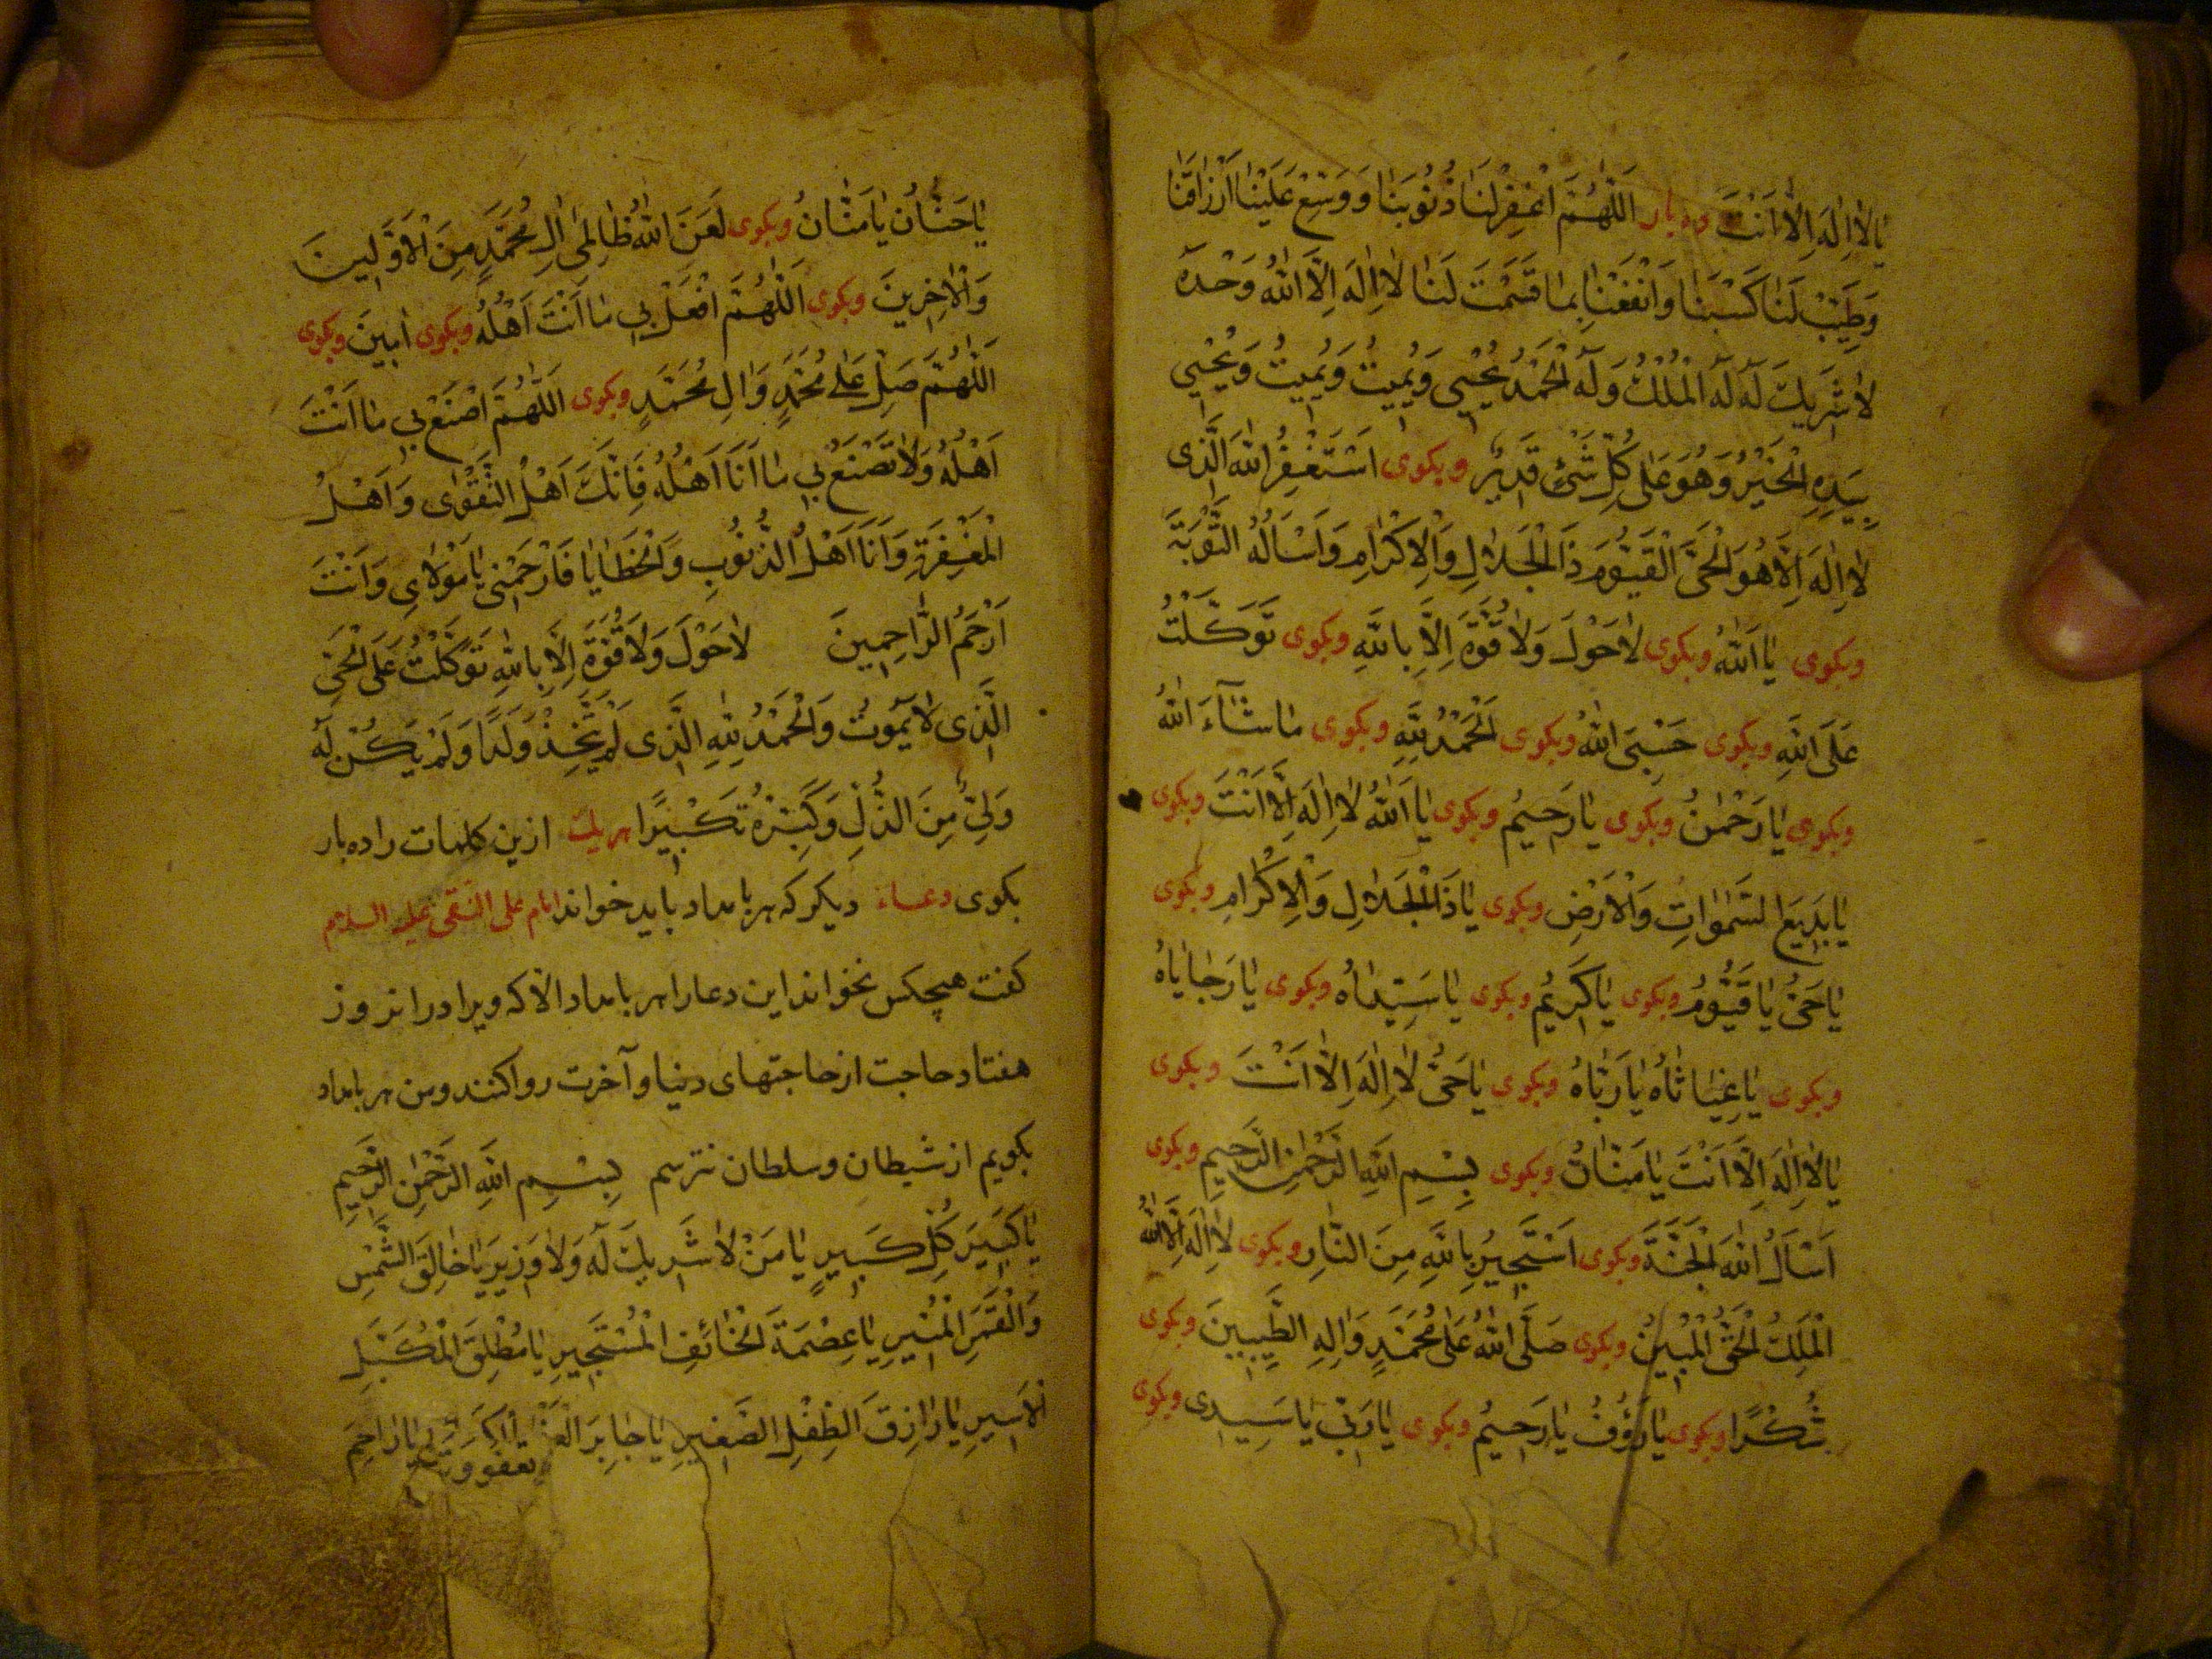 يٰا لٰا اِلٰهَ اِلّٰا اَنْتَ وده بار اَللّٰهُمَّ اغْفِرْ لَنٰا ذُنُوبَنٰا وَوَسِّعْ عَلَيْنٰا اَرْزٰاقَنٰا
وَطَيِّبْ لَنٰا كَسْبَنٰا وَانْفَعْنٰا بِمٰا قَسَمْتَ لَنٰا لٰا اِلٰهَ اِلَّا اللّٰهُ وَحْدَهُ
لٰا شَرِيكَ لَهُ لَهُ الْمُلْكُ وَلَهُ الْحَمْدُ يُحْيِي وَيُمِيتُ وَيُمِيتُ وَيُحْيِي
بِيَدِهِ الْخَيْرُ وَهُوَ عَلٰى كُلِّ شَيْءٍ قَدِيرٌ وبكوى اَسْتَغْفِرُ اللّٰهَ الَّذِى
لٰا اِلٰهَ اِلّٰا هُوَ الْحَىَّ الْقَيُّومَ ذَا الْجَلٰالِ وَالْاِكْرٰامِ وَاَسْاَلُهُ التَّوْبَةَ
وبكوى يٰا اَللّٰهُ وبكوى لٰا حَوْلَ وَلٰا قُوَّةَ اِلَّا بِاللّٰهِ وبكوى تَوَكَّلْتُ
عَلَى اللّٰهِ وبكوى حَسْبِىَ اللّٰهُ وبكوى اَلْحَمْدُ لِلّٰهِ وبكوى مٰا شٰآءَ اللّٰهُ
وبكوى يٰا رَحْمٰنُ وبكوى يٰا رَحِيمُ وبكوى يٰا اَللّٰهُ لٰا اِلٰهَ اِلّٰا اَنْتَ وبكوى
يٰا بَدِيعَ السَّمٰوٰاتِ وَالْاَرْضِ وبكوى يٰا ذَا الْجَلٰالِ وَالْاِكْرٰامِ وبكوى
يٰا حَىُّ يٰا قَيُّومُ وبكوى يٰا كَرِيمُ وبكوى يٰا سَيِّدٰاهُ وبكوى يٰا رَجٰايٰاهُ
وبكوى يٰا غِيٰاثٰاهُ يٰا رَبّٰاهُ وبكوى يٰا حَىُّ لٰا اِلٰهَ اِلّٰا اَنْتَ وبكوى
يٰا لٰا اِلٰهَ اِلّٰا اَنْتَ يٰا مَنّٰانُ وبكوى بِسْمِ اللّٰهِ الرَّحْمٰنِ الرَّحِيمِ وبكوى
اَسْاَلُ اللّٰهَ الْجَنَّةَ وبكوى اَسْتَجِيرُ بِاللّٰهِ مِنَ النّٰارِ وبكوى لٰا اِلٰهَ اِلَّا اللّٰهُ
الْمَلِكُ الْحَقُّ الْمُبِينُ وبكوى صَلَّى اللّٰهُ عَلٰى مُحَمَّدٍ وَاٰلِهِ الطَّيِّبِينَ وبكوى
شُكْرًا وبكوى يٰا رَؤُفُ يٰا رَحِيمُ وبكوى يٰا رَبِّى يٰا سَيِّدِى وبكوى
يٰا حَنّٰانُ يٰا مَنّٰانُ وبكوى لَعَنَ اللّٰهُ ظٰالِمِى اٰلِ مُحَمَّدٍ مِنَ الْاَوَّلِينَ
وَالْاٰخِرِينَ وبكوى اَللّٰهُمَّ افْعَلْ بِى مٰا اَنْتَ اَهْلُهُ وبكوى اٰمِينَ وبكوى
اَللّٰهُمَّ صَلِّ عَلٰى مُحَمَّدٍ وَاٰلِ مُحَمَّدٍ وبكوى اَللّٰهُمَّ اصْنَعْ بِى مٰا اَنْتَ
اَهْلُهُ وَلٰا تَصْنَعْ بِى مٰا اَنَا اَهْلُهُ فَاِنَّكَ اَهْلُ التَّقْوٰى وَاَهْلُ
الْمَغْفِرَةِ وَاَنَا اَهْلُ الذُّنُوبِ وَالْخَطٰايٰا فَارْحَمْنِى يٰا مَوْلٰاىَ وَاَنْتَ
اَرْحَمُ الرّٰاحِمِينَ لٰا حَوْلَ وَلٰا قُوَّةَ اِلَّا بِاللّٰهِ تَوَكَّلْتُ عَلَى الْحَىِّ
الَّذِى لٰا يَمُوتُ وَالْحَمْدُ لِلّٰهِ الَّذِى لَمْ يَتَّخِذْ وَلَدًا وَلَمْ يَكُنْ لَهُ
وَلِىٌّ مِنَ الذُّلِّ وَكَبِّرْهُ تَكْبِيرًا هريك ازين كلمات را ده بار
بكوى دعاء ديكر كه هر بامداد بايد خواند امام على النقى عليه السلام
كفت هيچكس نخواند اين دعا را هر بامداد الا كه ويرا در انروز
هفتاد حاجت از حاجتهاى دنيا و آخرت روا كنند ومن هر بامداد
بكويم از شيطان وسلطان نترسم بِسْمِ اللّٰهِ الرَّحْمٰنِ الرَّحِيمِ
يٰا كَبِيرَ كُلِّ كَبِيرٍ يٰا مَنْ لٰا شَرِيكَ لَهُ وَلٰا وَزِيرَ يٰا خٰالِقَ الشَّمْسِ
وَالْقَمَرِ الْمُنِيرِ يٰا عِصْمَةَ الْخٰائِفِ الْمُسْتَجِيرِ يٰا مُطْلِقَ الْمُكَبَّلِ
الْاَسِيرِ يٰا رٰازِقَ الطِّفْلِ الصَّغِيرِ يٰا جٰابِرَ يٰا رٰاحِمَ